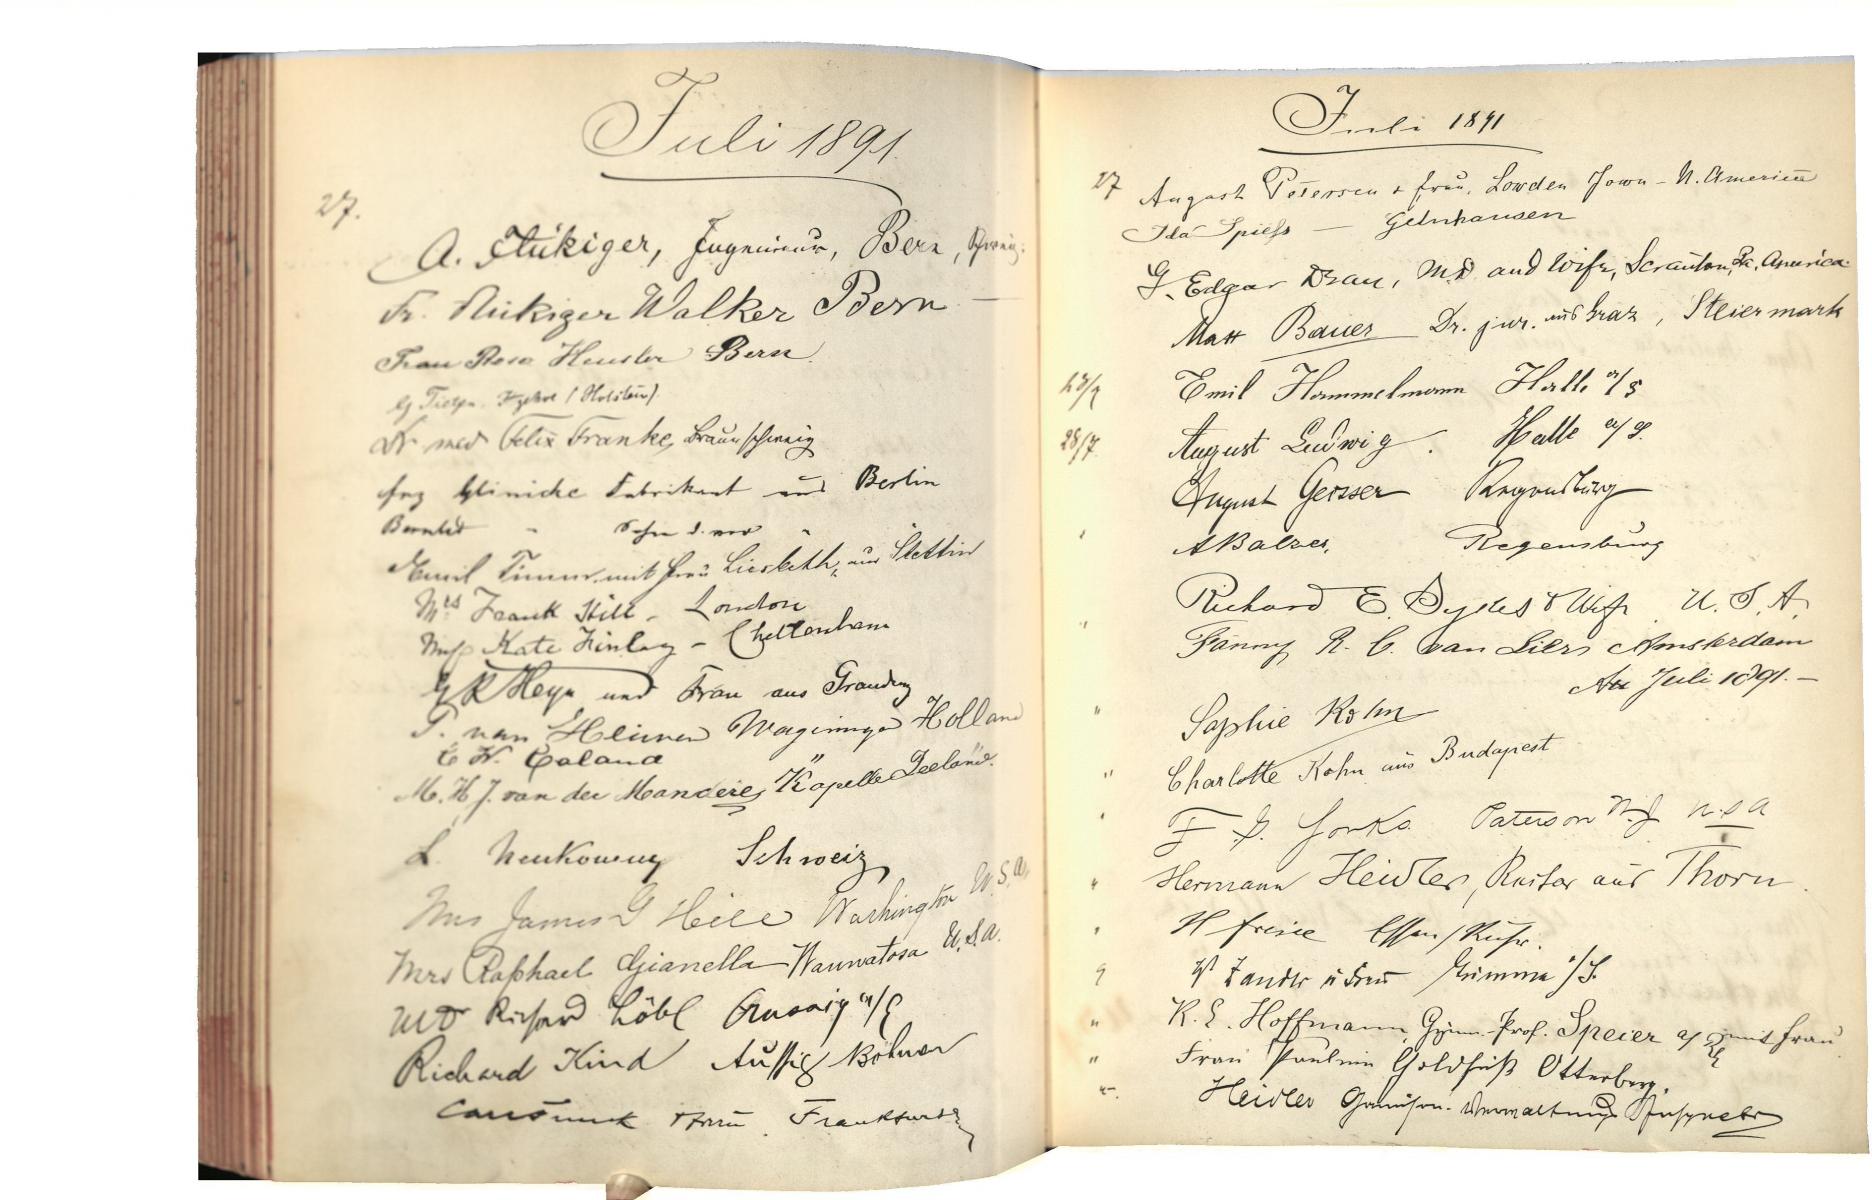 Juli 1891.
27.
A. Flükiger, Ingenieur, Bern, Schweiz.
Fr. Flükiger Walker Bern
Frau Rosa Heusler Bern.
(Holstein).
Dr med Felix Franke, Braunschweig
Glinicke Fabrikant aus Berlin
Sohn d. vor "
Emil Timm mit Frau Liesbeth, aus Stettin
Mrs Frank Hill - London
Miss Kate Finlay - Cheltenham
Heyn und Frau aus Graudenz
P. van Wageningen Holland
C. W. Caland "
M. H. J. van der Kapelle Zeeland.
L. Neukomm Schweiz
Mrs James G Hill Washington U.S.A.
Mrs Raphael Gianella Wauwatosa U.S.A.
MD Richard Löbl Aussig a/E
Richard Kind Aussig Böhmen
Frau. Frankfurt
Juli 1891
27 August Petersen & Frau, Lowden Iowa - N. America
Ida Spiess — Gelnhausen
G. Edgar Dean, M.D and Wife, Scranton, Pa. America.
Max Bauer Dr. jur. aus Graz, Steiermark
Emil Hammelmann Halle a/S
28/7. August Ludwig. Halle a/S.
August Geisser Regensburg
A Balzer, Regensburg
Richard E. Dykes & Wife U.S.A.
Fanny R. C. van Lier Amsterdam
Juli 1891. —
" Sophie Kohn
" Charlotte Kohn aus Budapest
Paterson N.J U.S.A
" Hermann Heidler, aus Thorn.
H Freise Essen/Ruhr.
W Zander u Frau Grimma i/S.
" K. E. Hoffmann, Gymn.-Prof. Speier a/Rh mit Frau
" Frau Pauline Goldfuß Otterberg.
" Heidler Garnison-Verwaltungs Inspector